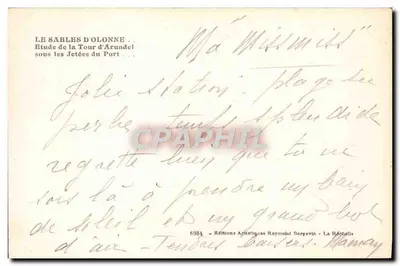 LE SABLES D'OLONNE . .
Etude de la Tour d'Arundel
sous les Jetées du Port . . .
Ma "Missmiss"
Jolie station. plage su
perbe temps splendide
CPARAMA
regrette bien que tu ne
sois là à prendre un bain
de soleil et un grand bol
d'air - Tendres baisers. Mamay
6954 - Editions Artistiques Raymond Bergevin - La Rochelle